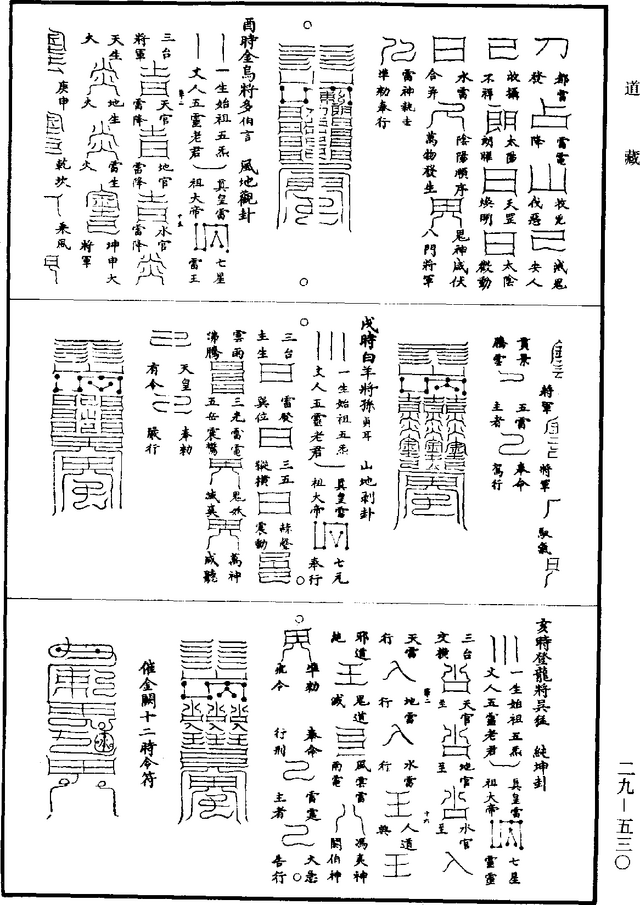 道藏
都雷 雷電 收兇 滅惡
發 降 伐惡 安人
故攝 太陽 天罡 太陰
不祥 朗耀 煥明 激動
水雷 陰陽順序 鬼神咸伏
合并 萬物發生 八門將軍
準勑奉行
酉時金烏將多伯言 風地觀卦
一生始祖五炁 真皇雷 七星
丈人五靈老君 祖大帝 雷王
三台 天官 地官 水官
將軍 雷降 雷降 雷降
天生 地生 雷生 坤申大
火 火 火 將軍
庚申 乾坎 乘風
將軍 將軍 馭氣
貫景 五雷 奉命
騰雲 主者 駕行
戌時白羊將孫勇耳 山地剝卦
一生始祖五炁 真皇雷 七元
丈人五靈老君 祖大帝 奉行
三台 雷發 三五 赫聲
主生 巽位 縱橫 震動
雲雨 三光雷電 鬼妖 萬神
沸騰 五岳震驚 滅爽 咸聽
天皇 奉勑
有令 嚴行
亥時登龍將吳猛 純坤卦
一生始祖五炁 真皇雷 七星
丈人五靈老君 祖大帝 雷靈
三台 天官 地官 水官
交橫 至 至 至
天雷 地雷 水雷 人道
行 行 行 興
邪道 鬼道 風雲雷 馮夷神
絕 滅 雨電 閼伯神
準勑 奉命 雷霆 大急
行刑 主者 告行
催金闕十二時令符
二九—五三〇